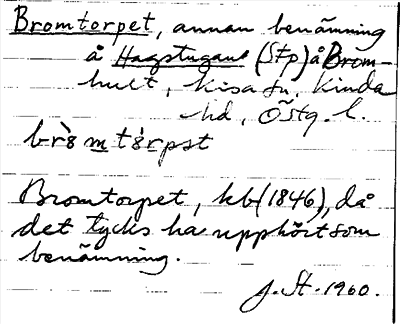 Bromtorpet, annan benämning
å Hagstugan (Stp) å Brom-
hult, Kisa sn, Kinda
hd, Östg. l.
Bromtorpet, kb (1846), då
det tycks ha upphört som
benämning.
J. St. 1960.